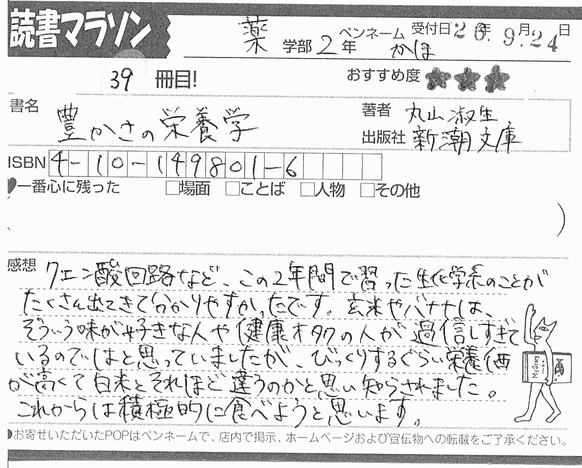 読書マラソン
薬 学部 2 年
ペンネーム かほ
受付日 20年 9月 24日
39 冊目!
おすすめ度 ★★★
書名 豊かさの栄養学
著者 丸山淑生
出版社 新潮文庫
ISBN 4-10-149801-6
♥一番心に残った □場面 □ことば □人物 □その他
)
感想 クエン酸回路など、この2年間で習った生化学系のことが
たくさん出てきて分かりやすかったです。玄米やバナナは、
そういう味が好きな人や健康オタクの人が過信しすぎて
いるのではと思っていましたが、びっくりするぐらい栄養価
が高くて白米とそれほど違うのかと思い知らされました。
これからは積極的に食べようと思います。
●お寄せいただいたPOPはペンネームで、店内で掲示、ホームページおよび宣伝物への転載をご了承ください。